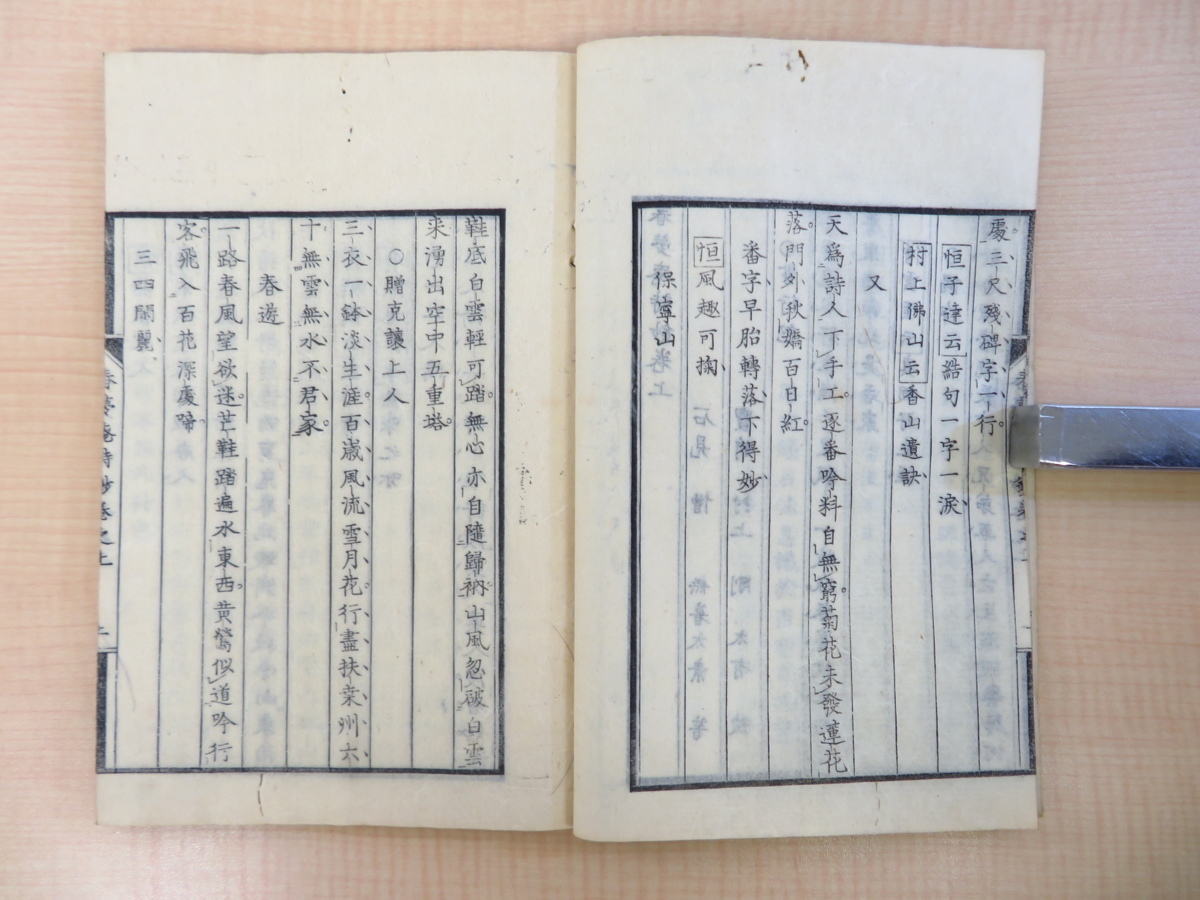 處。三、尺、殘、碑、字、一、行。
恒子達云誥句一字一淚
村上佛山云香山遺訣
又
天爲詩人下手工。逐番吟料自無窮。菊花未發蓮花
落。門外秋嬌百日紅。
番字早胎轉落下得妙
恒風趣可掬
保寧山
鞋底白雲輕可踏。無心亦自隨歸衲。山風忽破白雲
來。湧出空中五重塔。
○贈克讓上人
三、衣、一、鉢、淡、生、涯。百歲風流雪月花。行、盡、扶、桒、州、六、
十、無、雲、無、水、不、君、家。
春遊
一路春風望欲迷。芒鞋踏遍水東西。黄鶯似道吟行
客。飛入百花深處啼。
三四閑麗